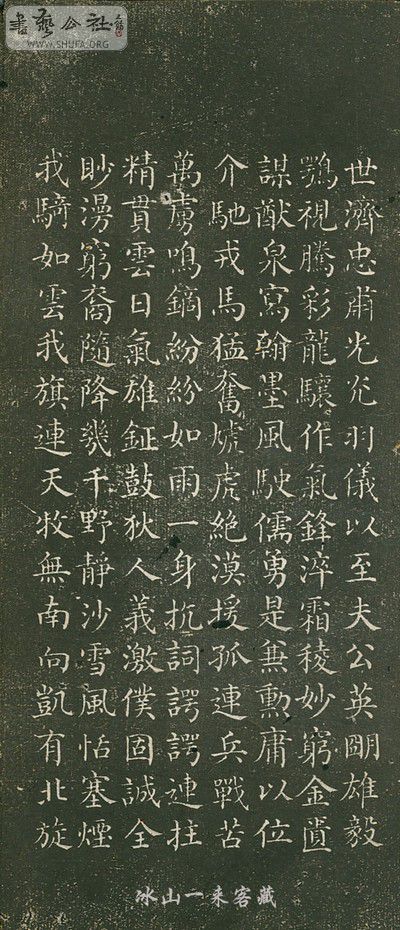 書藝公社
WWW.SHUFA.ORG
世濟忠肅光允羽儀以至夫公英朙雄毅
鶚視騰彩龍驤作氣鋒淬霜稜妙窮金匱
謀猷泉寫翰墨風駛儒勇是兼勳庸以位
介馳戎馬猛奮虓虎絶漠援孤連兵戰苦
萬虜鳴鏑紛紛如雨一身抗詞諤諤連拄
精貫雲日氣雄鉦鼓狄人義激僕固誠全
眇漫窮裔隨降幾千野靜沙雪風恬塞煙
我騎如雲我旗連天牧無南向凱有北旋
冰山一来客藏